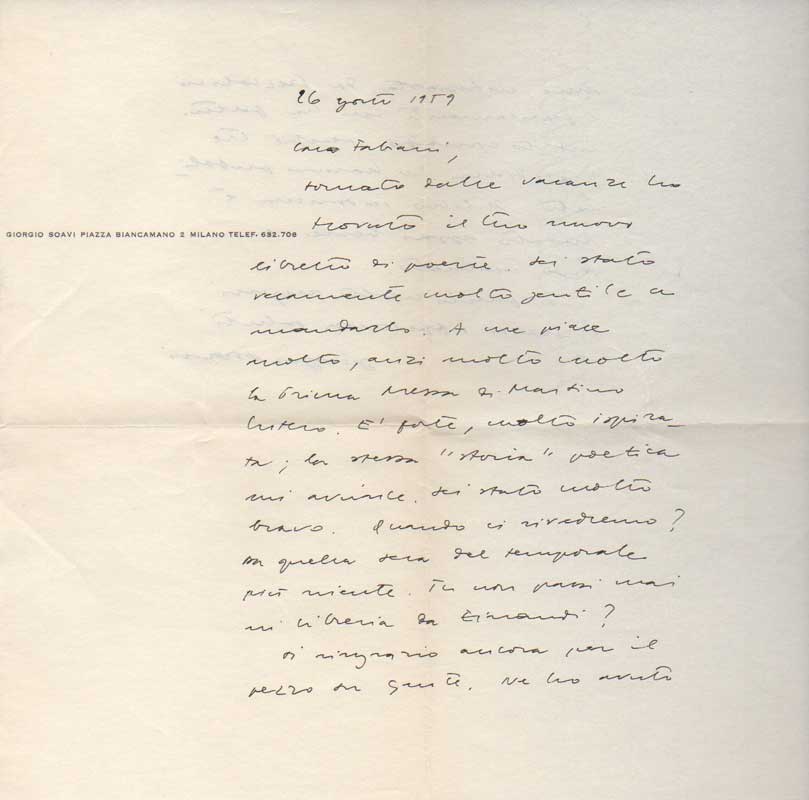 26 agosto 1959
Caro Fabiani,
tornato dalle vacanze ho
trovato il tuo nuovo
GIORGIO SOAVI PIAZZA BIANCAMANO 2 MILANO TELEF. 632.708
libretto di poesie. Sei stato
veramente molto gentile a
mandarlo. A me piace
molto, anzi molto molto
la Prima Messa di Martino
Lutero. E' forte, molto ispira-
ta; la stessa "storia" poetica
mi avvince. Sei stato molto
bravo. Quando ci rivedremo?
Da quella sera del temporale
più niente. Tu non passi mai
in libreria da Einaudi?
Ti ringrazio ancora per il
pezzo su Gente. Ne ho avuto